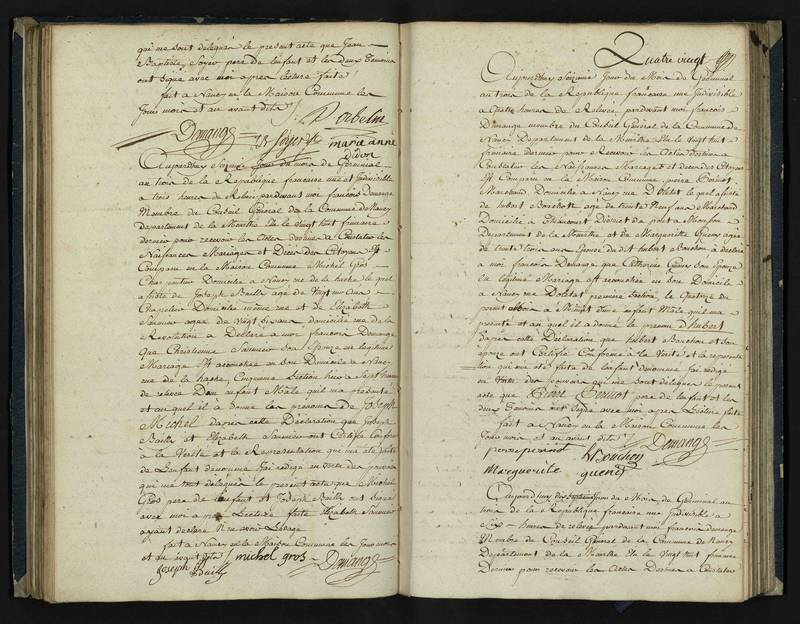 qui me sont délégués le present acte que Jean
Baptiste Soyer pere de lenfant et les deux Temoins
ont Signé avec moi apres lecture faite
fait a Nancy en la Maison Commune les
Jour mois et an avant dits
Demange Soyer marie anne
Aujourdhuy Jour du mois de Germinal
an trois de la Republique francaise une et Indivisible
a trois heures de Relevé pardevant moi francois Demange
Membre du Conseil Général de la Commune de Nancy
departement de la Meurthe Elu le vingt huit frimaire
dernier pour recevoir les Actes destinés a Constater les
Naissances Mariages et Décès des Citoyens Est
Comparu en la Maison Commune Michel Gros
Charpentier Domicilié a Nancy rue de la hache lequel
assisté de Joseph Bailly agé de Vingt
Chapelier Domicilié même rue et de Elizabeth
Saunier agée de Vingt Six ans domiciliée rue de la
Revolution a Déclaré a moi francois Demange
que Christienne Saunier Son Epouse en legitime
Mariage Est acouchée en Son Domicile a Nancy
rue de la hache, Cinquieme Section hier a Sept heures
de relevée Dun enfant Mâle quil ma presenté
et au quel il a donné les prenoms de Joseph
Michel dapres cette Déclaration que Joseph
Bailly et Elizabeth Saunier ont Certifié Conforme
a la Vérité et la Representation qui ma été faite
de Lenfant denommé Jai redigé en Vertu des pouvoirs
qui me sont délégués le present acte que Michel
Gros pere de lenfant et Joseph Bailly ont Signé
avec moi a pres Lecture faite Elizabeth Saunier
ayant declaré ne avoir Lusage
fait a Nancy en la Maison Commune les Jour mois
et an avant dits michel gros Demange
Joseph Bailly
Quatre vingt
Aujourdhuy Seizieme Jour du Mois de Germinal
an trois de la Republique francaise une Indivisible
a Quatre heures de Relevée, pardevant moi francois
Demange membre du Conseil Général de la Commune de
Nancy Departement de la Meurthe Elu le vingt huit
frimaire dernier pour Recevoir les Actes destinés a
Constater les Naissances Mariages et deces des Citoyens
Est Comparu en la Maison Commune
Marchand Domicilié a Nancy rue lequel assisté
de hubert Bouchon agé de trente Neuf ans Marchand
Domicilié a District de pont a Mousson
Departement de la Meurthe et de Marguerite agée
de trente trois ans Epouse dudit hubert Bouchon a déclaré
a moi francois Demange que Catherine Son Epouse
en légitime Mariage Est acouchée en Son Domicile
a Nancy rue premiere Section, le Quatorze du
present Mois a Minuit d'une enfant Male quil ma
presenté et au quel il a donné le prenom d'hubert
dapres cette Déclaration que hubert Bouchon et Son
epouse ont Certifié Conforme à la Verité et la representation
qui ma été faite de lenfant denommé Jai redigé
en Vertu des pouvoirs qui me sont délégués le present
acte que pere de lenfant et les
deux Temoins ont Signé avec moi apres Lecture faite
fait a Nancy en la Maison Commune les
Jour mois et an avant dits Demange
Bouchon
Marguerite
Aujourdhuy Jour du Mois de Germinal an
trois de la Republique francaise une Indivisible a
Six heures de relevé pardevant moi francois demange
Membre du Conseil Général de la Commune de Nancy
Département de la Meurthe Elu le Vingt huit frimaire
Dernier pour recevoir les Actes Destinés a Constater